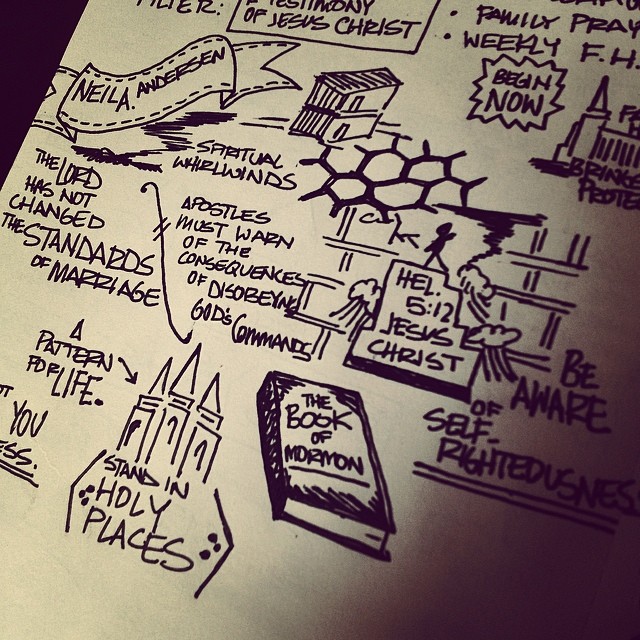 FILTER:
A TESTIMONY
OF JESUS CHRIST
• FAMILY PRAY
• WEEKLY F.H.
BEGIN
NOW
NEIL A. ANDERSEN
SPIRITUAL
WHIRLWINDS
THE LORD
HAS NOT
CHANGED
THE STANDARDS
OF MARRIAGE
APOSTLES
MUST WARN
OF THE
CONSEQUENCES
OF DISOBEYING
GOD'S COMMANDS
HEL.
5:12
JESUS
CHRIST
BRINGS
BE
AWARE
OF
SELF-
RIGHTEOUSNESS
A
PATTERN
FOR LIFE.
YOU
STAND IN
HOLY
PLACES
THE
BOOK
OF
MORMON